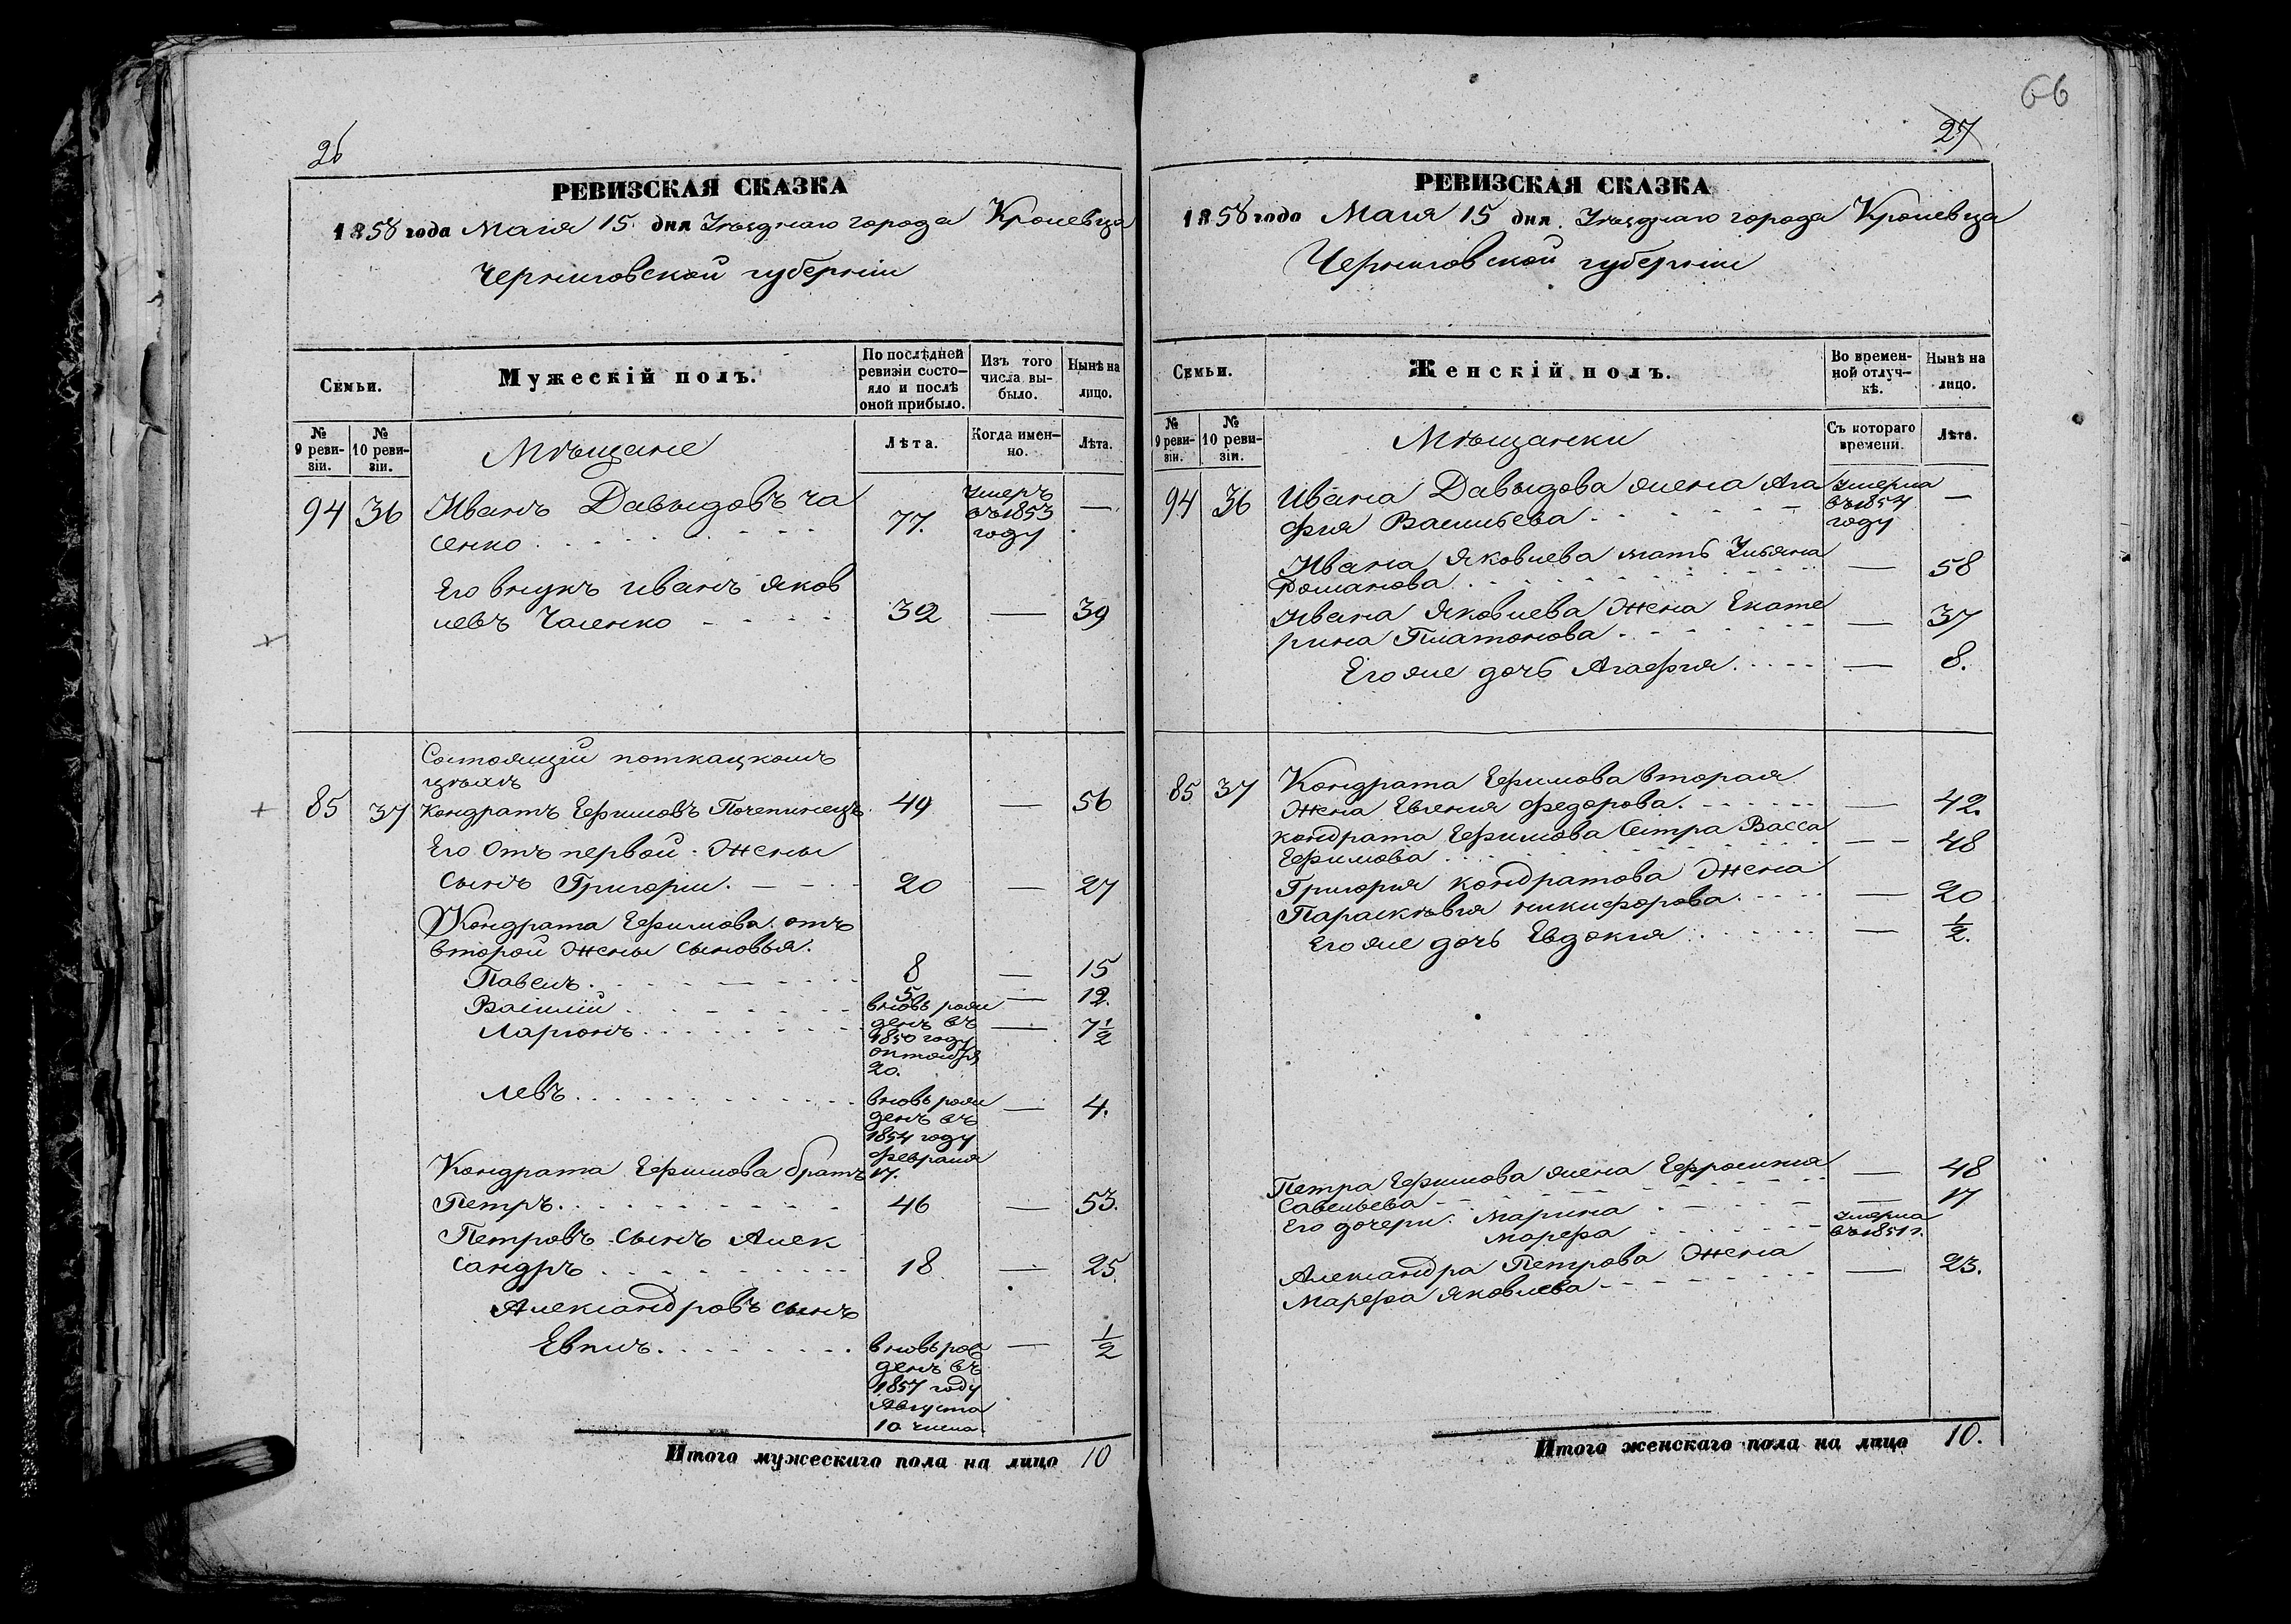 26
РЕВИЗСКАЯ СКАЗКА
1858 года Маія 15 дня Уѣзднаго города Кролевца
Черниговской губерніи
Семьи.
Мужескій полъ.
По послѣдней ревизіи состояло и послѣ оной прибыло.
Изъ того числа выбыло.
Нынѣ на лицо.
№ 9 ревизіи.
№ 10 ревизіи.
Мѣщане
Лѣта.
Когда именно.
Лѣта.
94 36 Иванъ Давыдовъ Ча 77. умеръ —
сенко въ 1853
году
Его внукъ Иванъ Яков
левъ Чаенко 32 — 39
Состоящій поткацкомъ
цѣхѣ
85 37 Кондратъ Ефимовъ Почепинецъ 49 — 56
Его Отъ первой жены
сынъ Григорій 20 — 27
Кондрата Ефимова отъ
второй жены сыновья.
Павелъ 8 — 15
Василій 5 — 12.
Ларіонъ вновь рож — 7 1/2
денъ въ
1850 году
октября
20.
Левъ вновь рож — 4.
денъ въ
1854 году
февраля
Кондрата Ефимова братъ 17.
Петръ 46 — 53.
Петровъ сынъ Алек
сандръ 18 — 25.
Александровъ сынъ
Евпл. вновь рож — 1/2
денъ въ
1857 году
Августа
10 числа.
Итого мужескаго пола на лицо 10
66
27
РЕВИЗСКАЯ СКАЗКА
1858 года Маія 15 дня Уѣзднаго города Кролевца
Черниговской губерніи
Семьи.
Женскій полъ.
Во временной отлучкѣ.
Нынѣ на лицо.
№ 9 ревизіи.
№ 10 ревизіи.
Мѣщанки
Съ котораго времени.
Лѣта.
94 36 Ивана Давыдова жена Ага умерла —
фія Васильева въ 1854
году
Ивана Яковлева мать Ульяна
Романова — 58
Ивана Яковлева жена Екате
рина Платонова — 37
Его же дочь Агафія — 8.
85 37 Кондрата Ефимова вторая
жена Евгенія Федорова — 42.
Кондрата Ефимова Сестра Васса
Ефимова — 48
Григорія Кондратова жена
Параскѣвія Никифорова — 20
Его же дочь Евдокія — 1/2.
Петра Ефимова жена Ефросинія — 48
Савельева
Его дочери Марина — 17
Марфа умерла
въ 1851 г.
Александра Петрова жена — 23.
Марфа Яковлева
Итого женскаго пола на лицо 10.